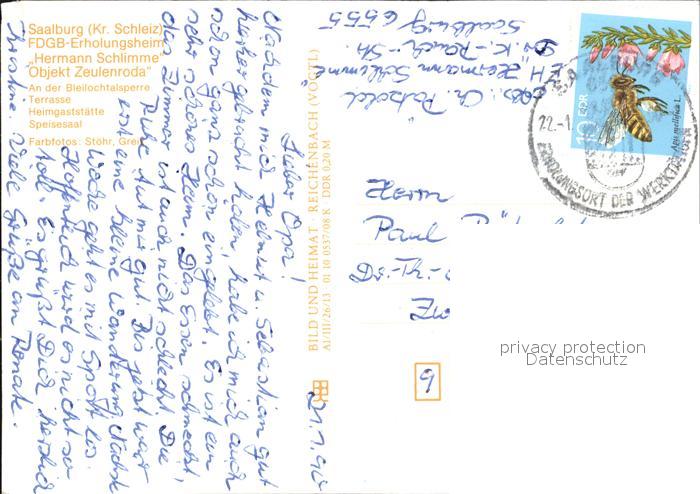 Saalburg (Kr. Schleiz)
FDGB-Erholungsheim
„Hermann Schlimme"
Objekt Zeulenroda"
An der Bleilochtalsperre
Terrasse
Heimgaststätte
Speisesaal
Farbfotos: Stöhr,
21.1.90
Lieber Opa!
Nachdem mich Helmut u. Sebastian gut
hierher gebracht haben, habe ich mich auch
schon ganz schön eingelebt. Es ist ein
sehr schönes Heim. Das Essen schmeckt,
das Zimmer ist auch nicht schlecht. Die
Ruhe tut mir gut. Bis jetzt war
erst eine kleine Wanderung. Nächste
Woche geht es mit Sport los.
Hoffentlich wird es nicht so
toll. Es grüßt Dich herzlich
Viele Grüße an Renate.
BILD UND HEIMAT REICHENBACH (VOGTL)
A1/III/26/13 01 10 0537/08 K DDR 0,20 M
Abs.: Ch.
FEH Hermann Schlimme
Dr.-K.-Rauch-Str.
Saalburg 6555
10 DDR
Apis mellifica L.
22.-1.
ERHOLUNGSORT DER WERKTÄTIGEN
Herrn
Paul
9
privacy protection
Datenschutz